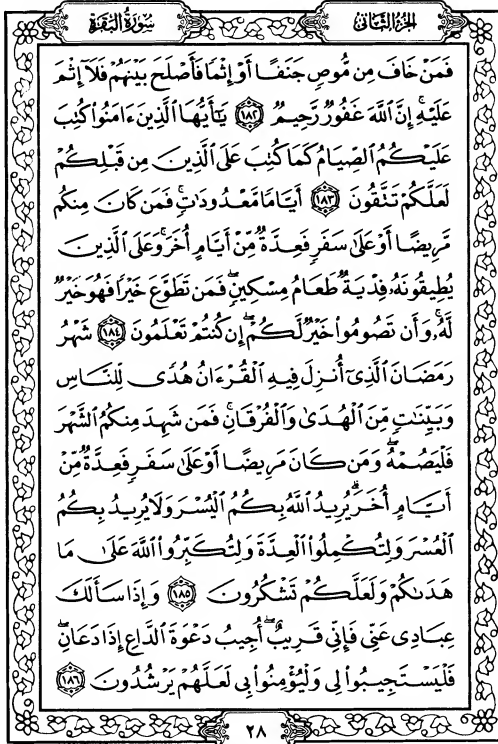 سُورَةُ البَقَرَةِ الجُزءُ الثَّانِي
فَمَنْ خَافَ مِن مُّوصٍ جَنَفًا أَوْ إِثْمًا فَأَصْلَحَ بَيْنَهُمْ فَلَآ إِثْمَ
عَلَيْهِۚ إِنَّ ٱللَّهَ غَفُورٌ رَّحِيمٌ ١٨٢ يَٰٓأَيُّهَا ٱلَّذِينَ ءَامَنُوا۟ كُتِبَ
عَلَيْكُمُ ٱلصِّيَامُ كَمَا كُتِبَ عَلَى ٱلَّذِينَ مِن قَبْلِكُمْ
لَعَلَّكُمْ تَتَّقُونَ ١٨٣ أَيَّامًا مَّعْدُودَٰتٍۚ فَمَن كَانَ مِنكُم
مَّرِيضًا أَوْ عَلَىٰ سَفَرٍ فَعِدَّةٌ مِّنْ أَيَّامٍ أُخَرَۚ وَعَلَى ٱلَّذِينَ
يُطِيقُونَهُۥ فِدْيَةٌ طَعَامُ مِسْكِينٍۖ فَمَن تَطَوَّعَ خَيْرًا فَهُوَ خَيْرٌ
لَّهُۥۚ وَأَن تَصُومُوا۟ خَيْرٌ لَّكُمْۖ إِن كُنتُمْ تَعْلَمُونَ ١٨٤ شَهْرُ
رَمَضَانَ ٱلَّذِىٓ أُنزِلَ فِيهِ ٱلْقُرْءَانُ هُدًى لِّلنَّاسِ
وَبَيِّنَٰتٍ مِّنَ ٱلْهُدَىٰ وَٱلْفُرْقَانِۚ فَمَن شَهِدَ مِنكُمُ ٱلشَّهْرَ
فَلْيَصُمْهُۖ وَمَن كَانَ مَرِيضًا أَوْ عَلَىٰ سَفَرٍ فَعِدَّةٌ مِّنْ
أَيَّامٍ أُخَرَۗ يُرِيدُ ٱللَّهُ بِكُمُ ٱلْيُسْرَ وَلَا يُرِيدُ بِكُمُ
ٱلْعُسْرَ وَلِتُكْمِلُوا۟ ٱلْعِدَّةَ وَلِتُكَبِّرُوا۟ ٱللَّهَ عَلَىٰ مَا
هَدَىٰكُمْ وَلَعَلَّكُمْ تَشْكُرُونَ ١٨٥ وَإِذَا سَأَلَكَ
عِبَادِى عَنِّى فَإِنِّى قَرِيبٌۖ أُجِيبُ دَعْوَةَ ٱلدَّاعِ إِذَا دَعَانِۖ
فَلْيَسْتَجِيبُوا۟ لِى وَلْيُؤْمِنُوا۟ بِى لَعَلَّهُمْ يَرْشُدُونَ ١٨٦
٢٨